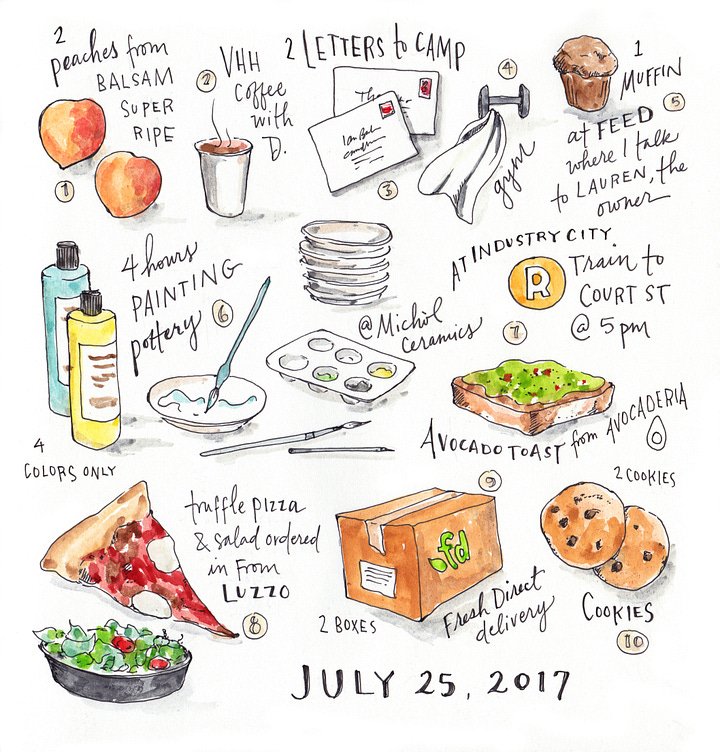 2
peaches from
BALSAM
SUPER
RIPE
1
2
VHH
Coffee
with
D.
2 LETTERS to CAMP
3
4
gym
1
MUFFIN
5
at FEED
where I talk
to LAUREN, the
owner
4 hours
PAINTING
pottery
6
@ Michol
ceramics
4
COLORS ONLY
AT INDUSTRY CITY
R
Train to
COURT ST
@ 5pm
7
AVOCADO TOAST from AVOCADERIA
truffle pizza
& salad ordered
in from
LUZZO
8
9
fd
2 BOXES
Fresh Direct
delivery
2 COOKIES
COOKIES
10
JULY 25, 2017